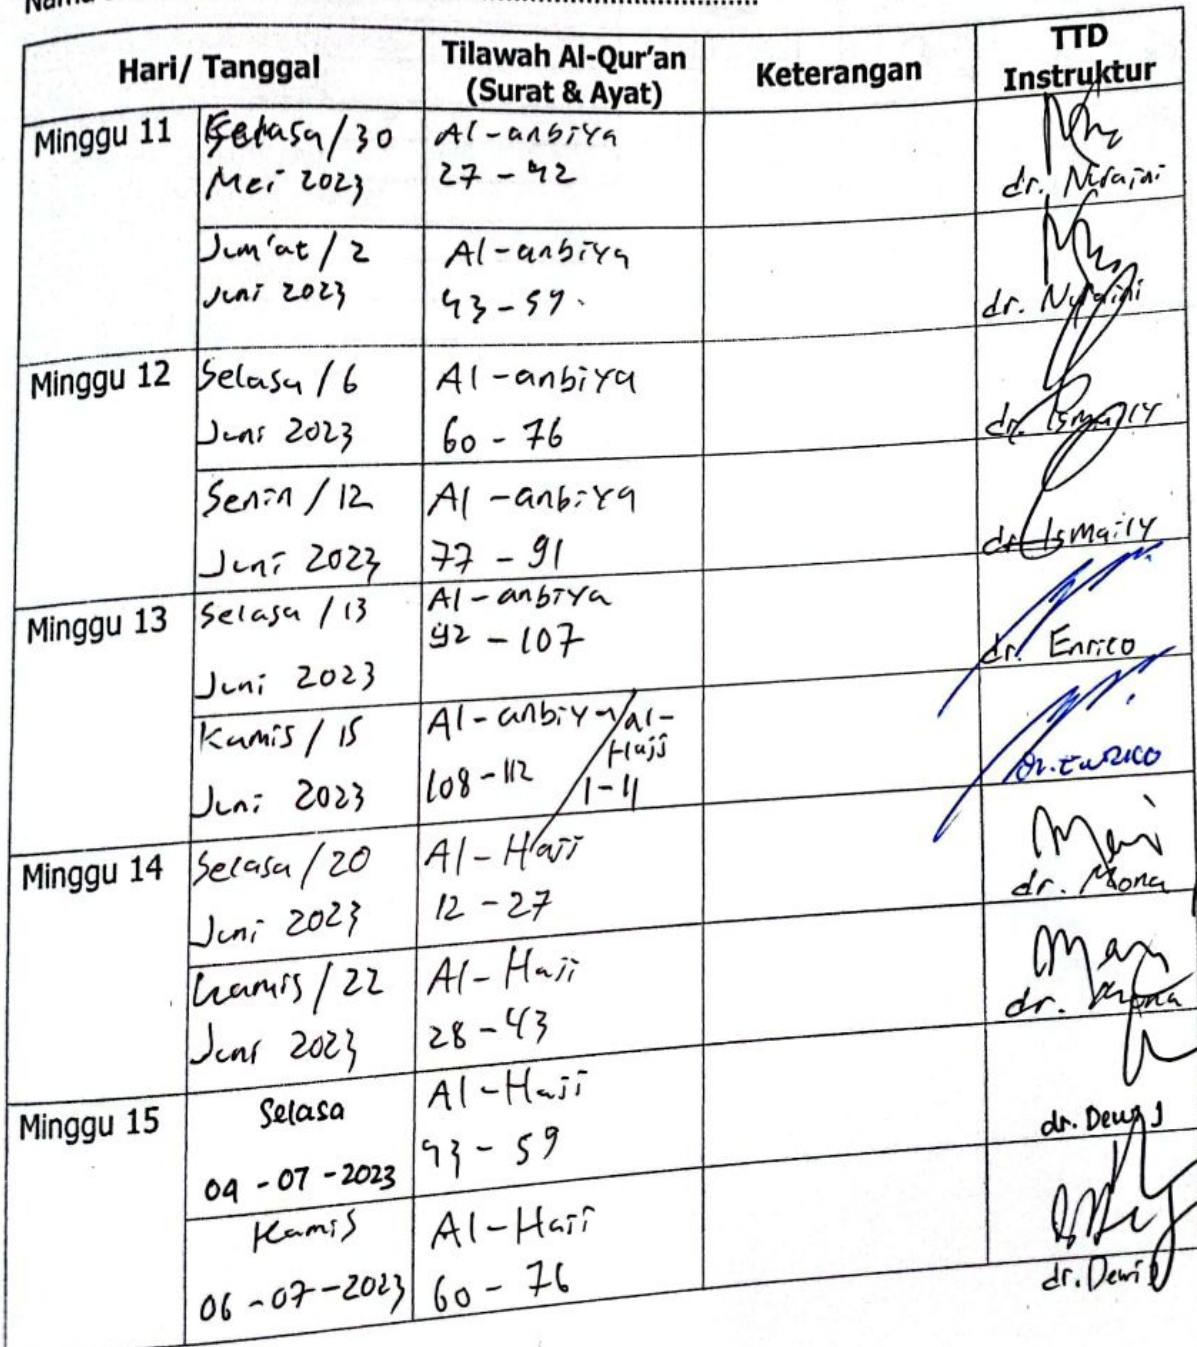 Nama
Hari/ Tanggal
Tilawah Al-Qur'an
(Surat & Ayat)
Keterangan
TTD
Instruktur
Minggu 11
Selasa / 30
Mei 2023
Al-anbiya
27 - 42
dr. Nuraini
Jum'at / 2
Juni 2023
Al-anbiya
43 - 59.
dr. Nuraini
Minggu 12
Selasa / 6
Juni 2023
Al-anbiya
60 - 76
dr. Ismaily
Senin / 12
Juni 2023
Al-anbiya
77 - 91
dr. Ismaily
Minggu 13
Selasa / 13
Juni 2023
Al-anbiya
92 - 107
dr. Enrico
Kamis / 15
Juni 2023
Al-anbiya / al-
Hajj
108 - 112
1 - 11
dr. Enrico
Minggu 14
Selasa / 20
Juni 2023
Al-Hajj
12 - 27
dr. Mona
Kamis / 22
Juni 2023
Al-Hajj
28 - 43
dr. Mona
Minggu 15
Selasa
04 - 07 - 2023
Al-Hajj
43 - 59
dr. Dewi
Kamis
06 - 07 - 2023
Al-Hajj
60 - 76
dr. Dewi